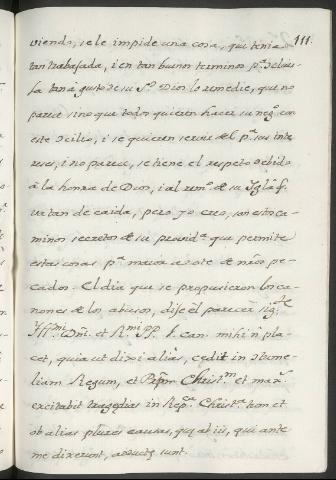 111.
viendo, se le impide una cosa, que tenia
tan trabajada, i en tan buen termino p.ª
la tan à gusto de su S.d Dios lo remedie, que no
parece sino que todos quieren hacer su neg.º con
este Concilio, i se quieren servir del p.ª sus inte
reses, i no parece, se tiene el respeto debido
à la honra de Dios, i al rem.º de su Iglã q.
va tan de caida, pero yo creo, son estos ca
minos secretos de su provid.ª que permite
estas cosas p.ª maior azote de nrõs pe
cados. El dia que se propusieron los ca
nones de los abusos, dije el parecer sig.te
Ill.mi Dñi. et R.mi PP. hi can. mihi ñ pla
cet, quia ut dixi alias, cedit in
liam Regum, et Christ.m et max.
excitabit tragedias in Rep.ca Christ.ª tum et
ob alias plures causas, quas ii, qui ante
me dixerunt, adducta sunt.